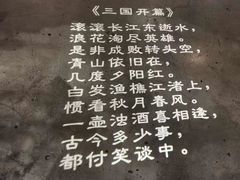 《三国开篇》
滚滚长江东逝水，
浪花淘尽英雄。
是非成败转头空，
青山依旧在，
几度夕阳红。
白发渔樵江渚上，
惯看秋月春风。
一壶浊酒喜相逢，
古今多少事，
都付笑谈中。